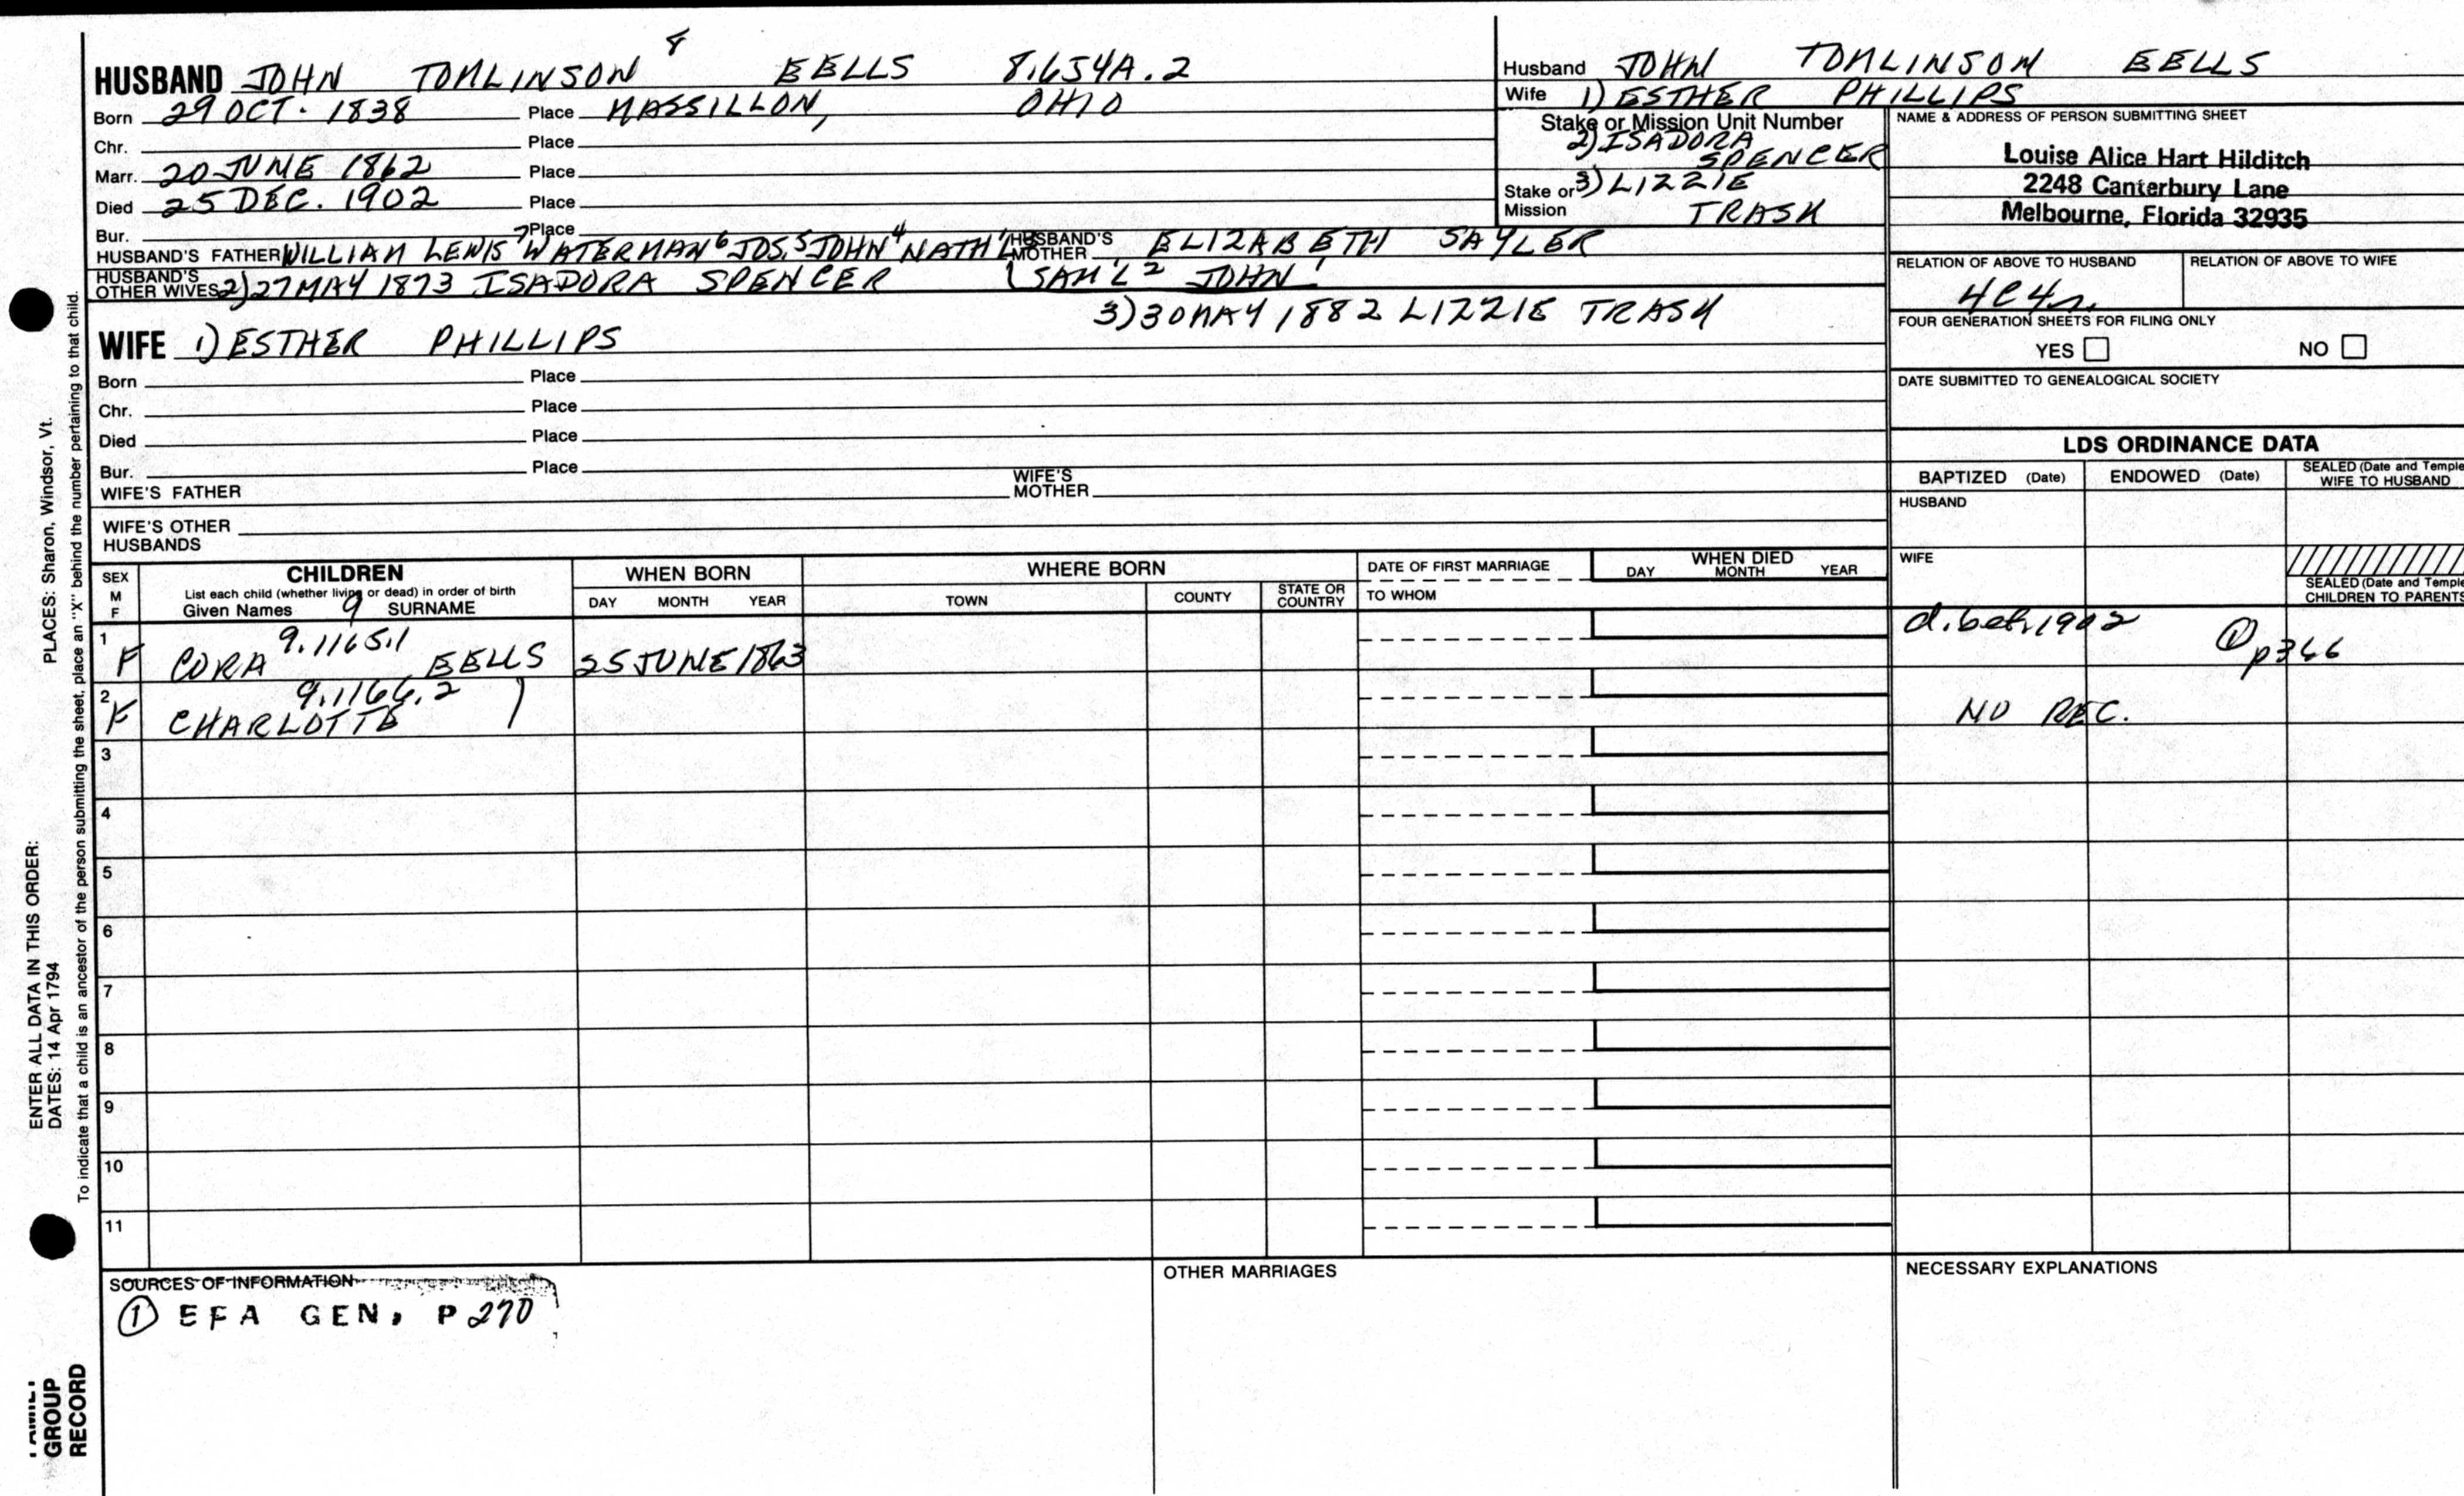 HUSBAND JOHN TOMLINSON 8 EELLS 8.654A.2
Born 29 OCT. 1838 Place MASSILLON, OHIO
Chr. Place
Marr. 20 JUNE 1862 Place
Died 25 DEC. 1902 Place
Bur. Place
HUSBAND'S FATHER WILLIAM LEWIS 7 WATERMAN 6 JOS. 5 JOHN 4 NATH'L HUSBAND'S MOTHER ELIZABETH SAYLER
HUSBAND'S OTHER WIVES 2) 27 MAY 1873 ISADORA SPENCER (SAM'L 2 JOHN 1
3) 30 MAY 1882 LIZZIE TRASK
WIFE 1) ESTHER PHILLIPS
Born Place
Chr. Place
Died Place
Bur. Place
WIFE'S FATHER WIFE'S MOTHER
WIFE'S OTHER HUSBANDS
Husband JOHN TOMLINSON EELLS
Wife 1) ESTHER PHILLIPS
Stake or Mission Unit Number
2) ISADORA SPENCER
Stake or Mission 3) LIZZIE TRASK
NAME & ADDRESS OF PERSON SUBMITTING SHEET
Louise Alice Hart Hilditch
2248 Canterbury Lane
Melbourne, Florida 32935
RELATION OF ABOVE TO HUSBAND RELATION OF ABOVE TO WIFE
4C4r.
FOUR GENERATION SHEETS FOR FILING ONLY
YES NO
DATE SUBMITTED TO GENEALOGICAL SOCIETY
LDS ORDINANCE DATA
BAPTIZED (Date) ENDOWED (Date) SEALED (Date and Temple WIFE TO HUSBAND
HUSBAND
WIFE
SEALED (Date and Temple CHILDREN TO PARENTS
SEX M F CHILDREN WHEN BORN WHERE BORN DATE OF FIRST MARRIAGE WHEN DIED
List each child (whether living or dead) in order of birth
Given Names 9 SURNAME DAY MONTH YEAR TOWN COUNTY STATE OR COUNTRY TO WHOM DAY MONTH YEAR
1 F CORA 9.1165.1 EELLS 25 JUNE 1863 d. bef. 1902 ① p366
2 F CHARLOTTE 9.1166.2 NO REC.
3
4
5
6
7
8
9
10
11
SOURCES OF INFORMATION OTHER MARRIAGES NECESSARY EXPLANATIONS
① EFA GEN, P 270
PLACES: Sharon, Windsor, Vt.
ENTER ALL DATA IN THIS ORDER:
DATES: 14 Apr 1794
To indicate that a child is an ancestor of the person submitting the sheet, place an "X" behind the number pertaining to that child.
FAMILY GROUP RECORD